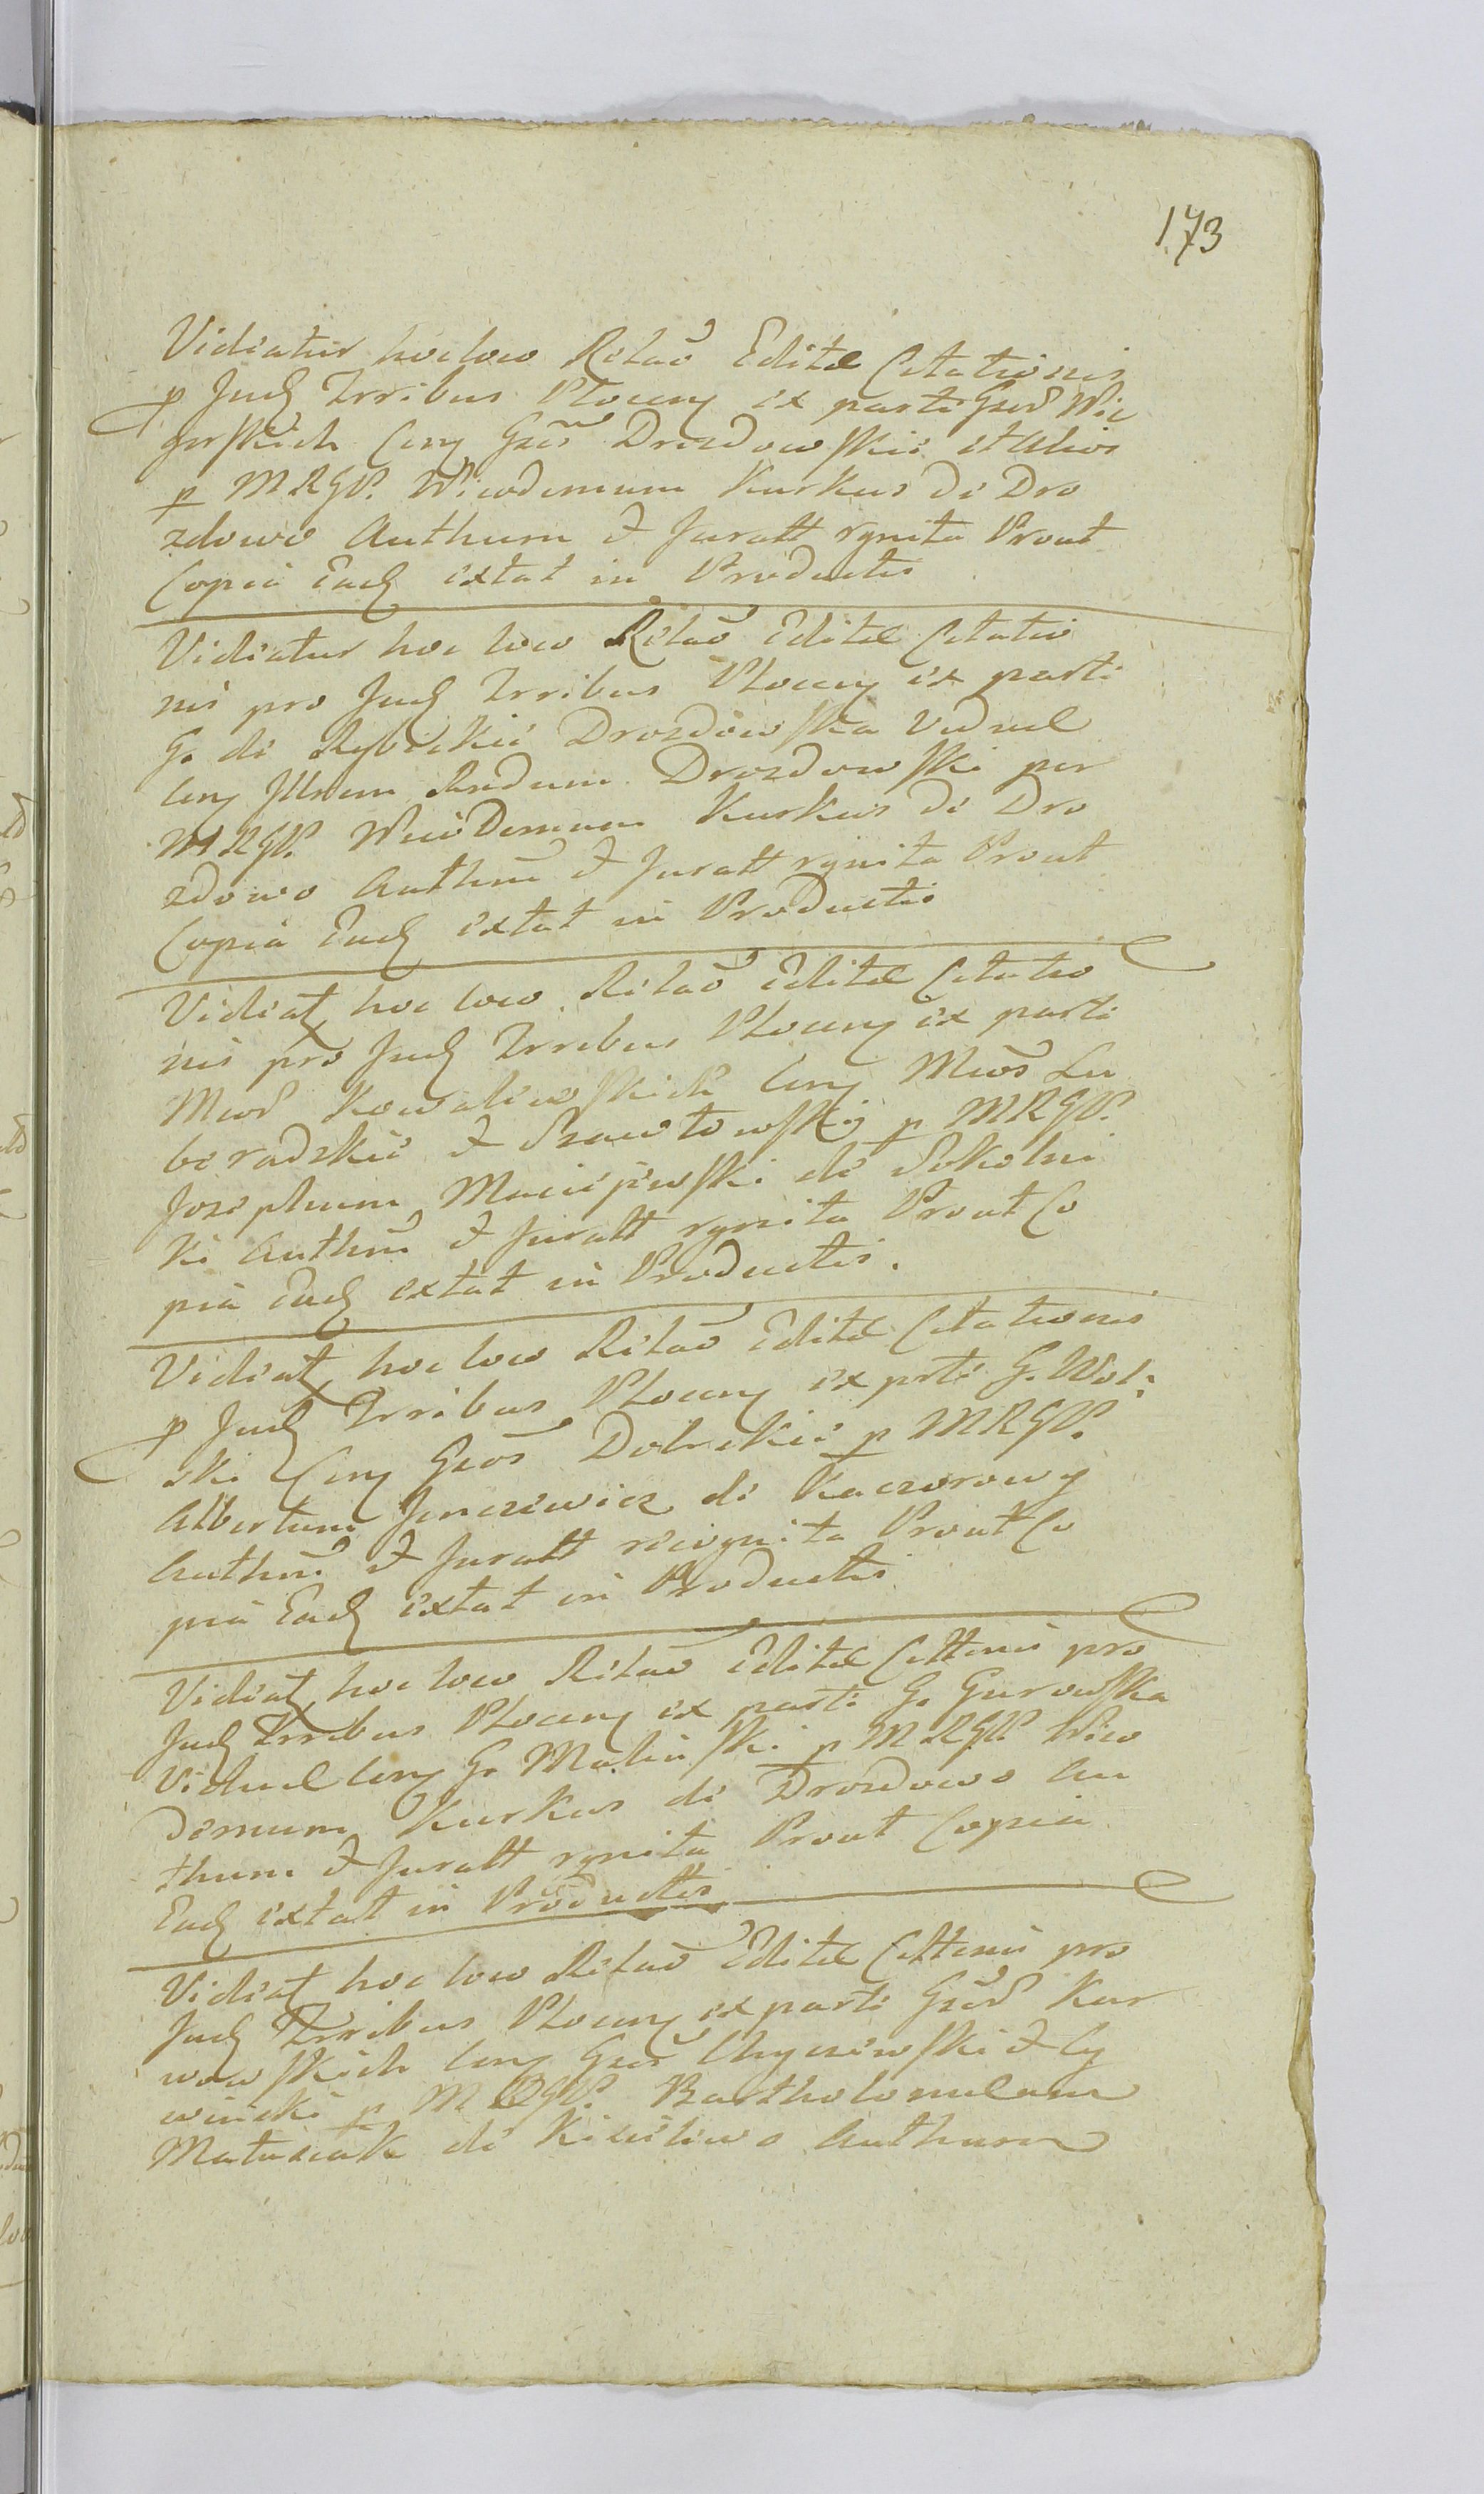 173
Videatur hoc loco Relao Editæ Citationis
p Jud Trribus Plocen ex parte Gsor Wie
Con Gsos Drozdowskie et Alios
p MRGP. Nicodemum Kurkus de Dro
zdowo Authum & Juratt rgnita Prout
Copia Ead extat in Productis
Videatur hoc loco Relao Editæ Citatio
nis pro Jud Trribus Plocen ex parte
G. de Rybickie Drozdowska Viduæ
Con Illrem Rndum Drozdowski per
MRGP. Nicodemum Kurkus de Dro
zdowo Authm & Juratt rgnita Prout
Copia Ead extat in Productis
Videat hoc loco Relao Editæ Citatio
nis pro Jud Trribus Plocen ex parte
Mcor Kowalewskich Con Mcos Lu
boradzkie & Szawłowskii p MRGP.
Josephum Maciejewski de Sokolni
ki Authm & Juratt rgnita Prout Co
pia Ead extat in Productis.
Videat hoc loco Relao Editæ Citationis
p Jud Trribus Plocen ex prte G. Wol:
ski Con Gsos Dobrskie p MRGP.
Albertum Jenczewicz de Kaczorowy
Authm & Juratt recognita Prout Co
pia Ead extat in Productis
Videat hoc loco Relao Editæ Cittnis pro
Jud Trribus Plocen ex parte G. Gurowska
Viduæ Con G. Maliński p MRGP. Nico
demum Kurkus de Drozdowo Au
thum & Juratt rgnita Prout Copia
Ead extat in Productis
Videat hoc loco Relao Editæ Cittnis pro
Jud Trribus Plocen ex parte Gsor Kur
wowskich Con Gsos Chyczewski & Cy
wiński p MRGP. Bartholomeum
Matusiak de Kisielewo Authum